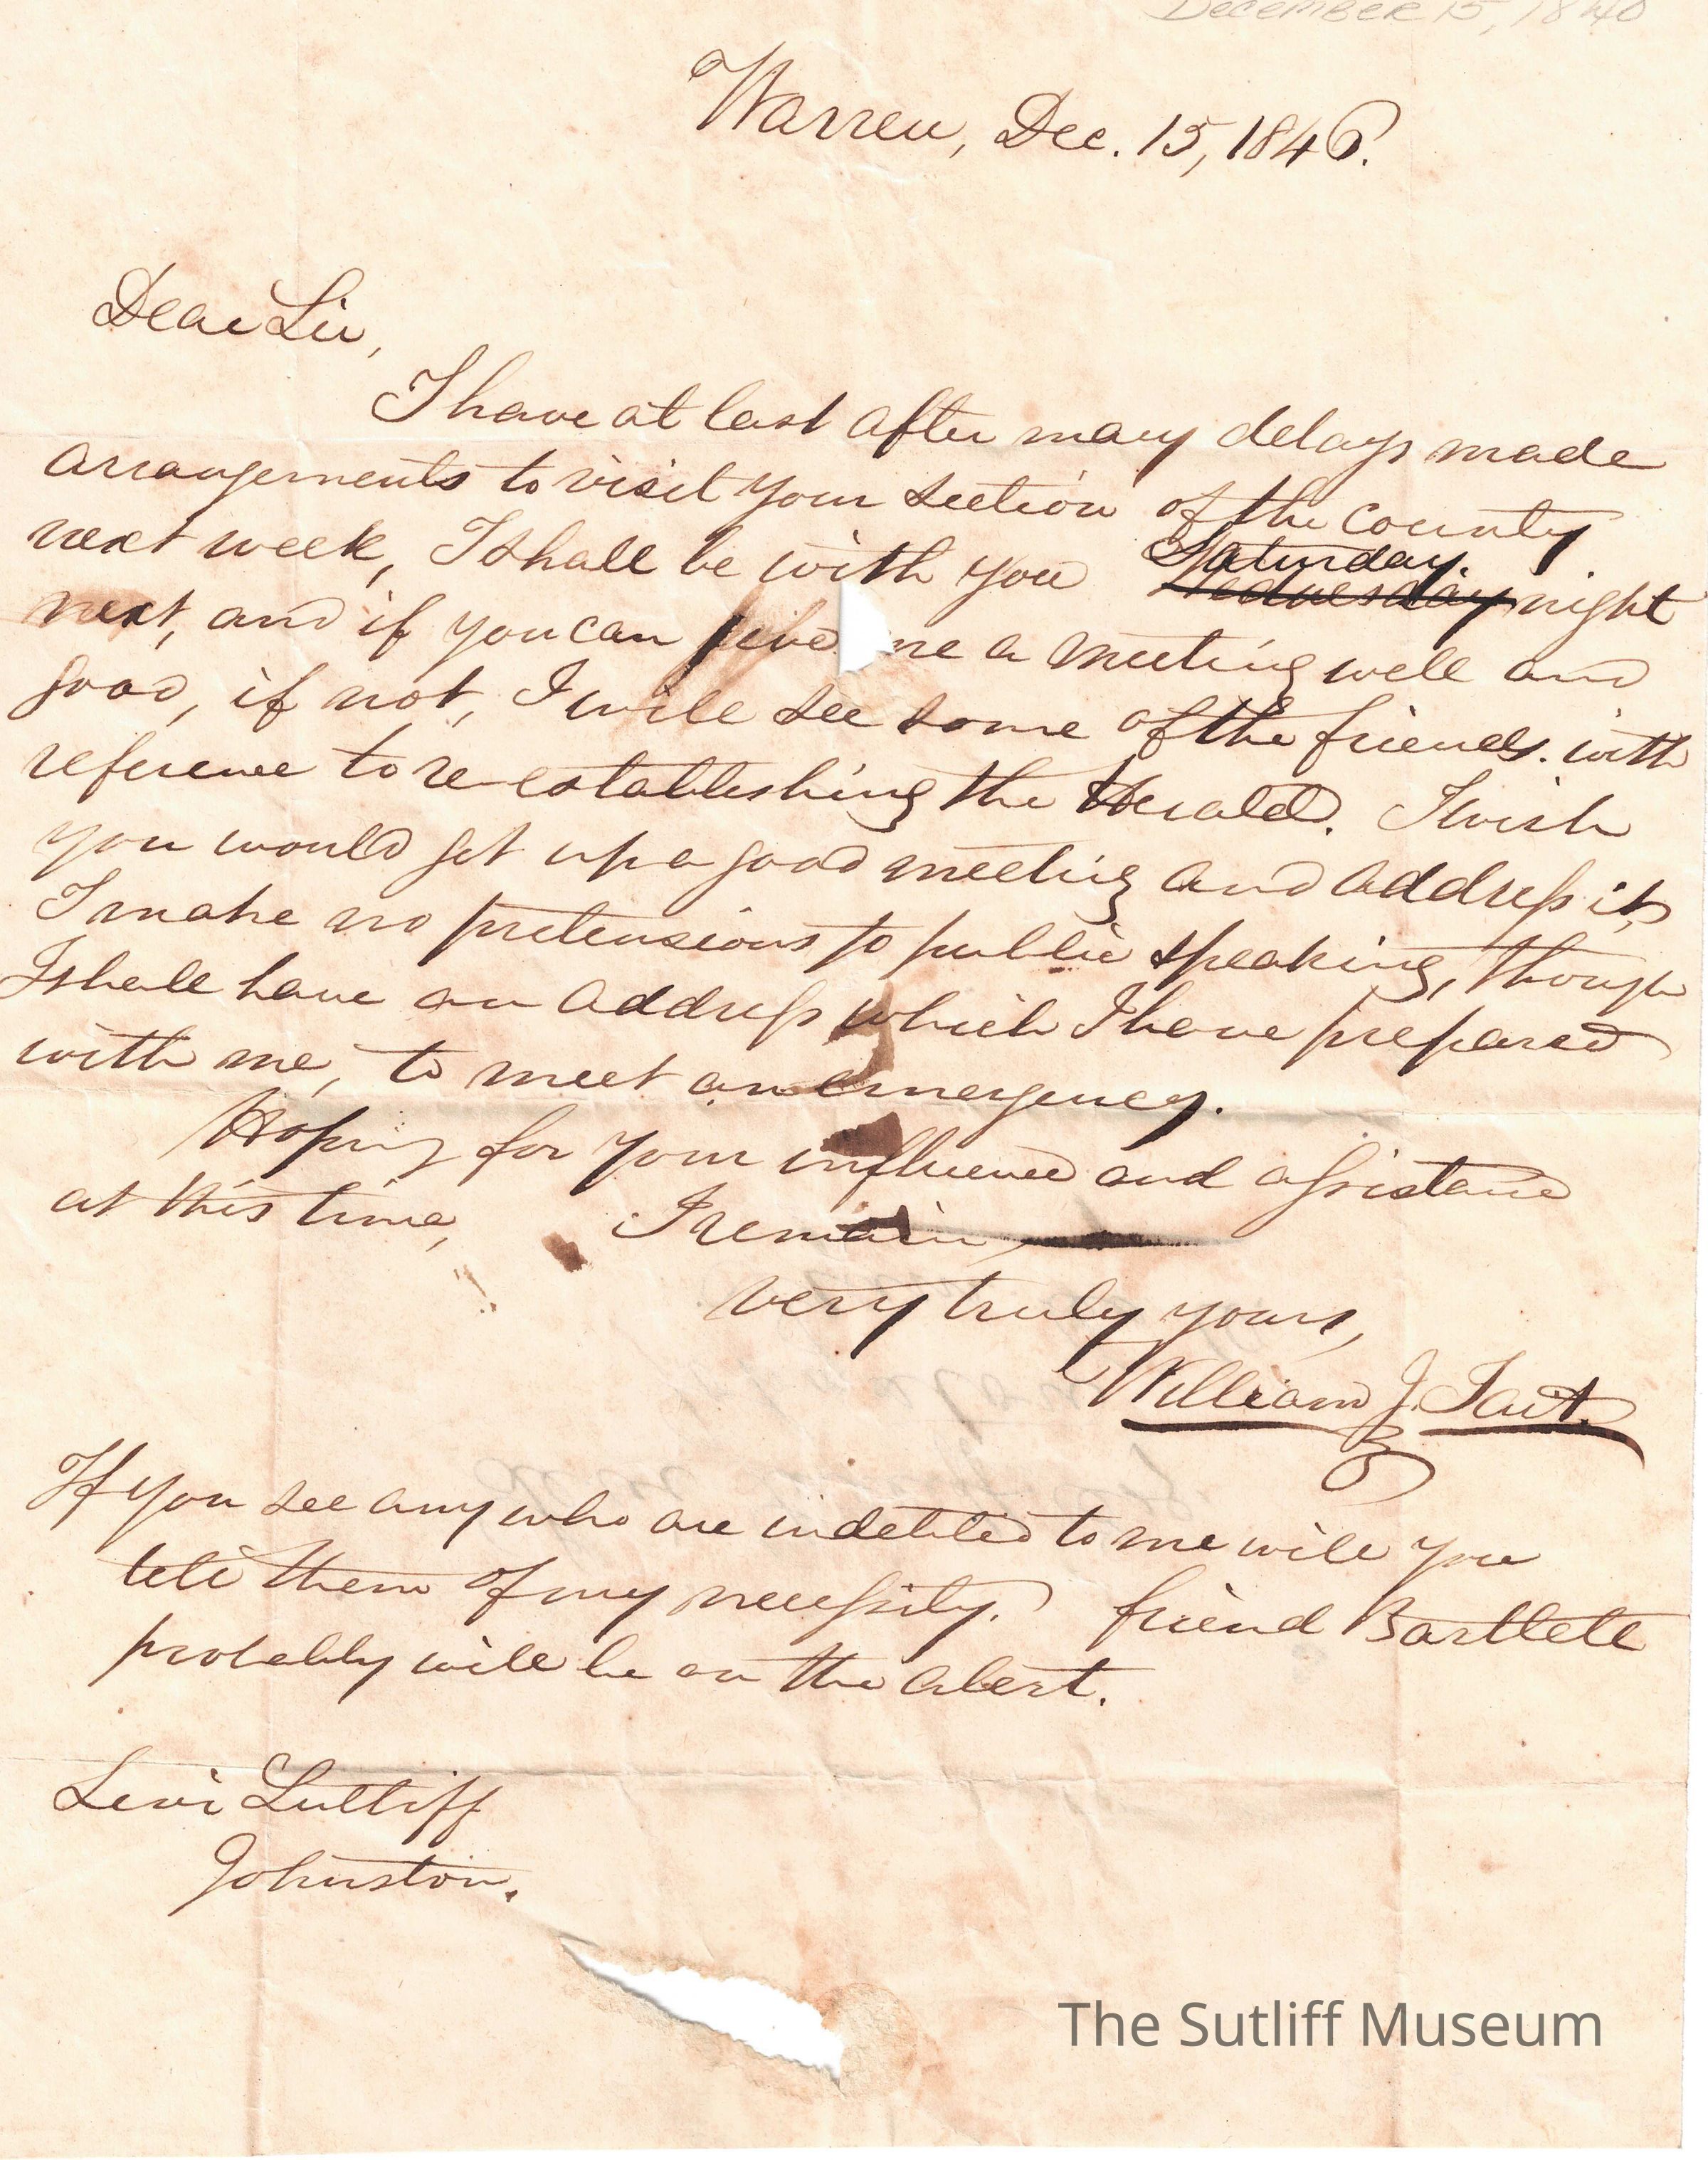 December 15, 1840
Warren, Dec. 15, 1840.
Dear Sir,
I have at last after many delays made
arrangements to visit your section of the county
next week, I shall be with you Saturday. Wednesday night
next, and if you can give me a meeting well and
good, if not, I will see some of the friends. with
reference to re-establishing the Herald. I wish
you would get up a good meeting and address it,
I make no pretensions to public speaking, though
I shall have an address which I have prepared
with me, to meet an emergency.
Hoping for your influence and assistance
at this time, I remain,
very truly yours,
William J. Tait.
If you see any who are indebted to me will you
tell them of my necessity. friend Bartlett
probably will be on the alert.
Levi Sutliff
Johnston.
The Sutliff Museum